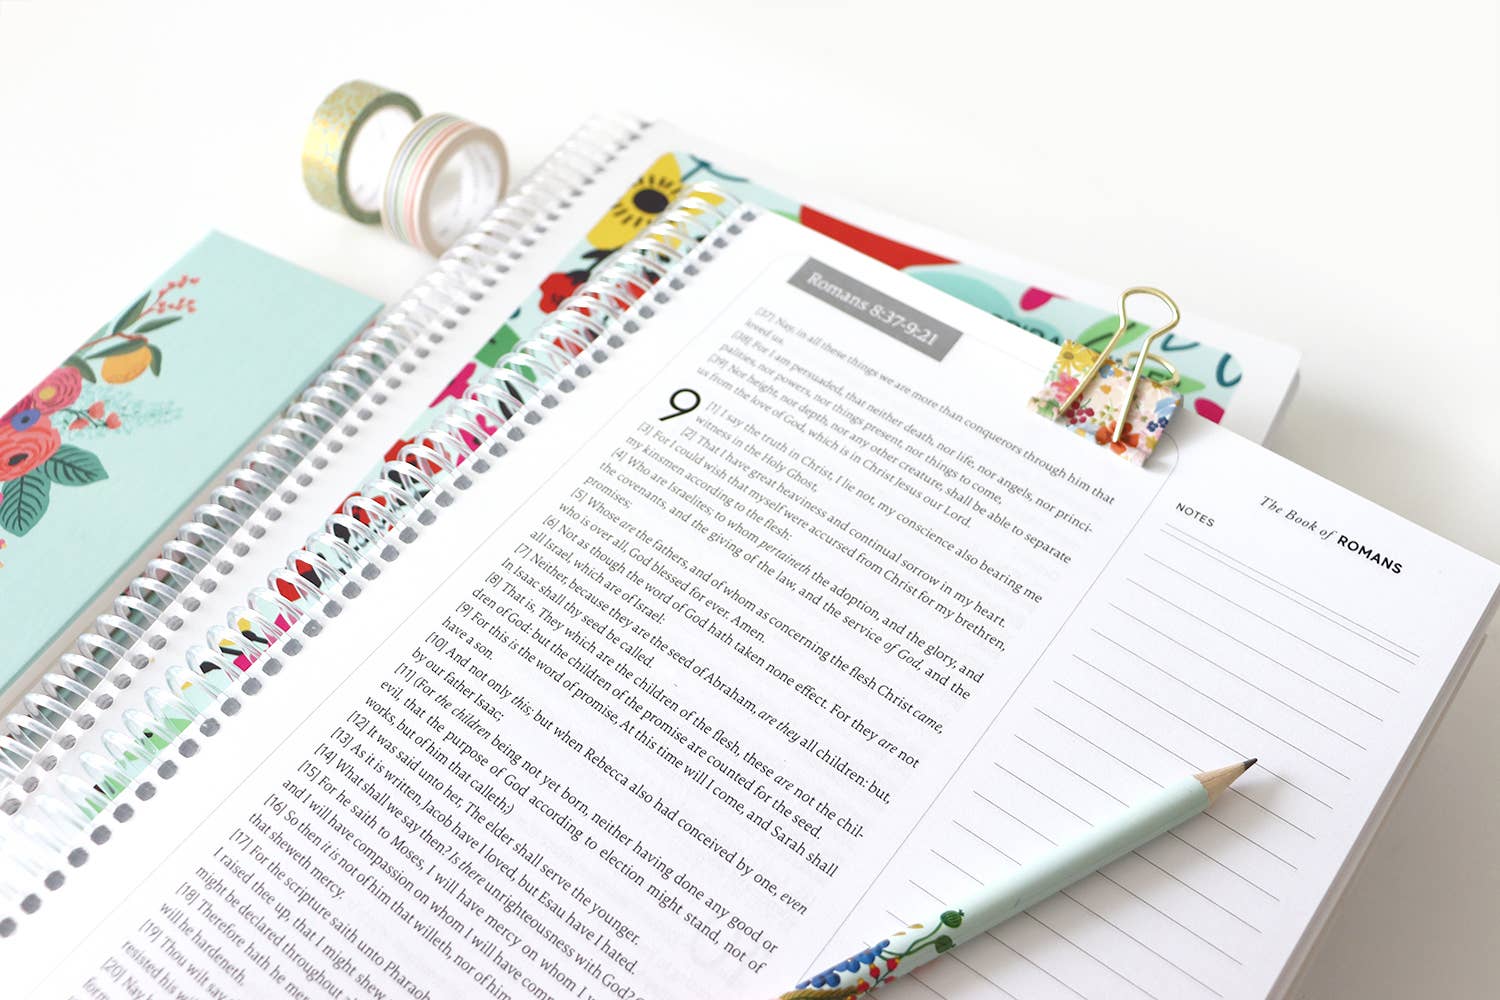 Romans 8:37-9:21
[37] Nay, in all these things we are more than conquerors through him that
loved us.
[38] For I am persuaded, that neither death, nor life, nor angels, nor princi-
palities, nor powers, nor things present, nor things to come,
[39] Nor height, nor depth, nor any other creature, shall be able to separate
us from the love of God, which is in Christ Jesus our Lord.
9
[1] I say the truth in Christ, I lie not, my conscience also bearing me
witness in the Holy Ghost,
[2] That I have great heaviness and continual sorrow in my heart.
[3] For I could wish that myself were accursed from Christ for my brethren,
my kinsmen according to the flesh:
[4] Who are Israelites; to whom pertaineth the adoption, and the glory, and
the covenants, and the giving of the law, and the service of God, and the
promises;
[5] Whose are the fathers, and of whom as concerning the flesh Christ came,
who is over all, God blessed for ever. Amen.
[6] Not as though the word of God hath taken none effect. For they are not
all Israel, which are of Israel:
[7] Neither, because they are the seed of Abraham, are they all children: but,
In Isaac shall thy seed be called.
[8] That is, They which are the children of the flesh, these are not the chil-
dren of God: but the children of the promise are counted for the seed.
[9] For this is the word of promise, At this time will I come, and Sarah shall
have a son.
[10] And not only this; but when Rebecca also had conceived by one, even
by our father Isaac;
[11] (For the children being not yet born, neither having done any good or
evil, that the purpose of God according to election might stand, not of
works, but of him that calleth;)
[12] It was said unto her, The elder shall serve the younger.
[13] As it is written, Jacob have I loved, but Esau have I hated.
[14] What shall we say then? Is there unrighteousness with God?
[15] For he saith to Moses, I will have mercy on whom I
and I will have compassion on whom I will have comp
[16] So then it is not of him that willeth, nor of him
that sheweth mercy.
[17] For the scripture saith unto Pharaoh
I raised thee up, that I might shew
might be declared throughout
[18] Therefore hath he mer
will he hardeneth.
[19] Thou wilt say
resisted his
[20] Nay
form
The Book of ROMANS
NOTES